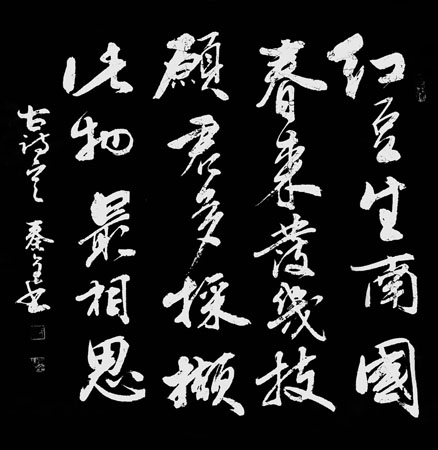 红豆生南國
春来發幾枝
願君多採擷
此物最相思
古詩 秦 书